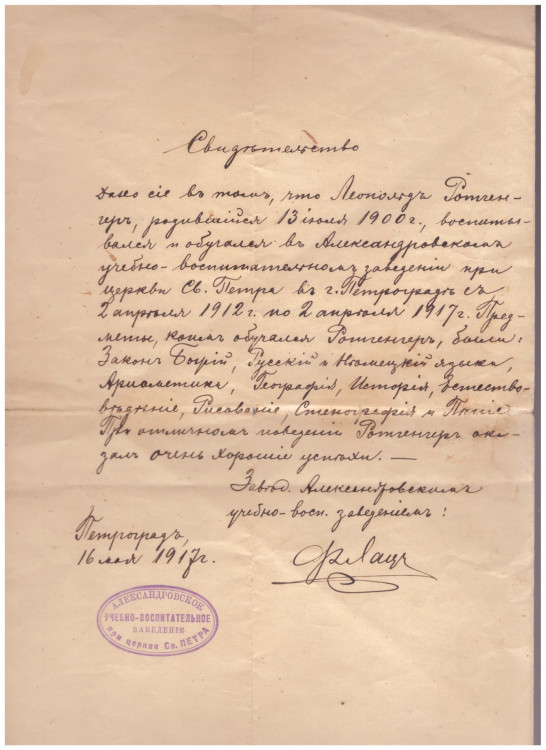 Свидѣтельство
Дано сіе въ томъ, что Леопольдъ Ротген-
геръ, родившійся 13 іюля 1900 г., воспиты-
вался и обучался въ Александровскомъ
учебно-воспитательномъ заведеніи при
церкви Св. Петра въ г. Петроградѣ съ
2 апрѣля 1912 г. по 2 апрѣля 1917 г. Пред-
меты, коимъ обучался Ротгенгеръ, были:
Законъ Божій, Русскій и Нѣмецкій языки,
Ариѳметика, Географія, Исторія, Естество-
вѣдѣніе, Рисованіе Стенографія и Пѣніе
При отличномъ поведеніи Ротгенгеръ ока-
залъ очень хорошіе успѣхи. —
Завѣд. Александровскимъ
учебно-восп. заведеніемъ:
Петроградъ,
16 мая 1917 г.
АЛЕКСАНДРОВСКОЕ
УЧЕБНО-ВОСПИТАТЕЛЬНОЕ
ЗАВЕДЕНІЕ
при церкви Св. ПЕТРА